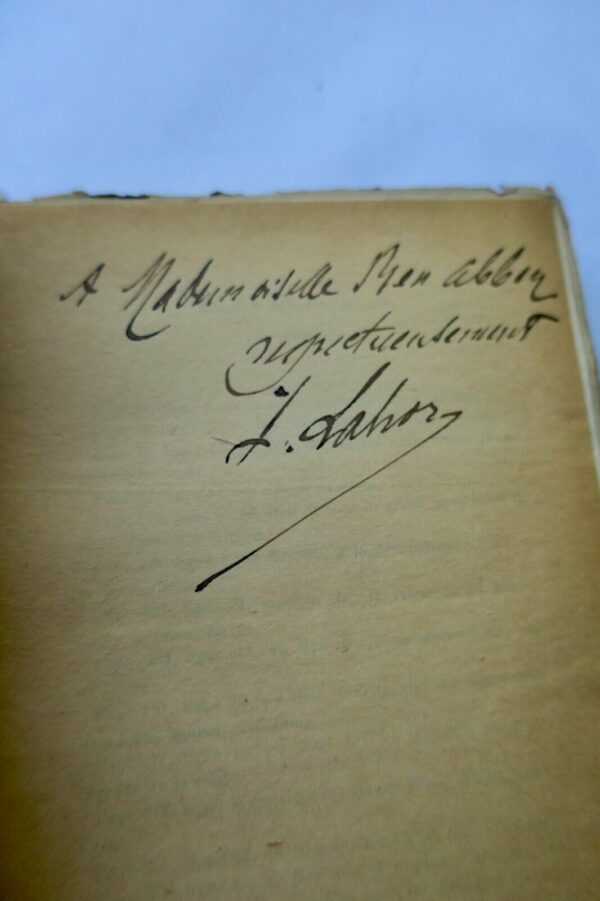 A Mademoiselle Ren Abbey
respectueusement
J. Lahor